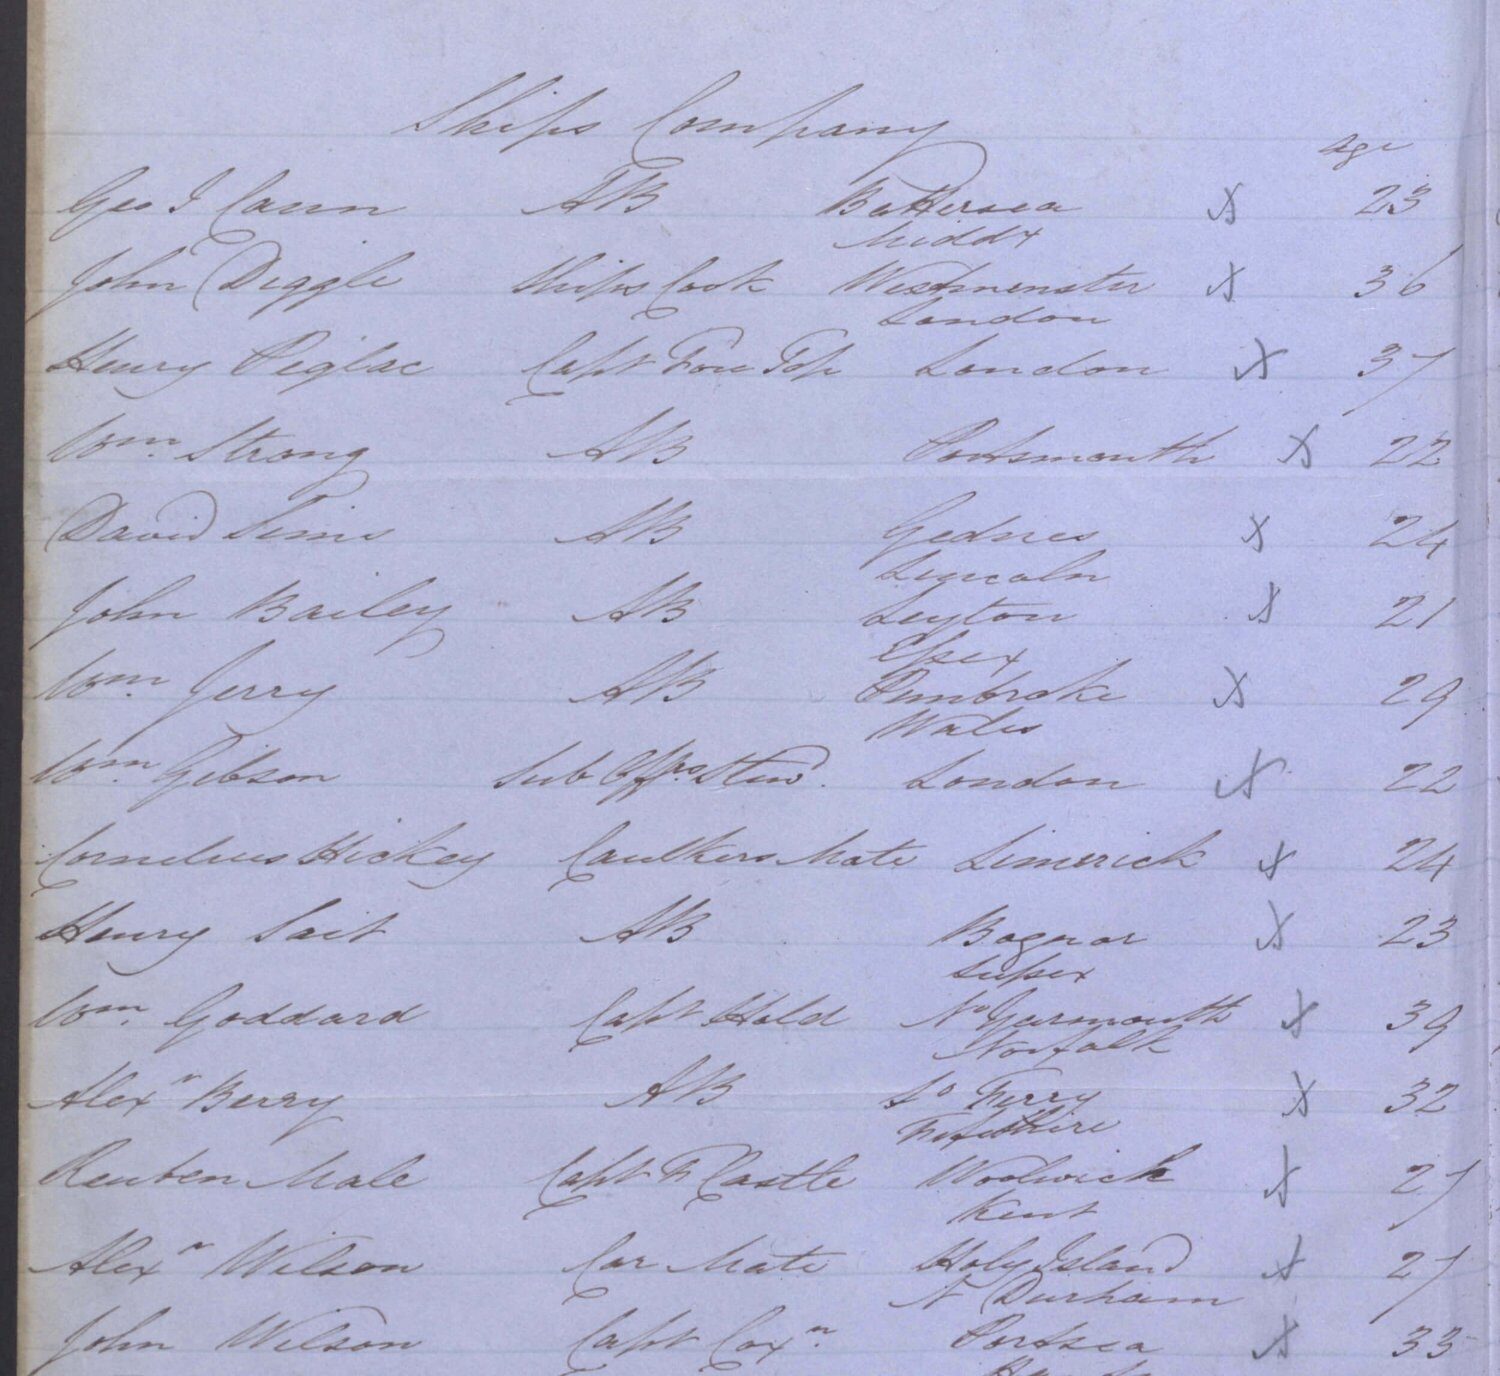 Ships Company
Age
Geo J Cann AB Battersea X 23
Middx
John Diggle Ships Cook Westminster X 36
London
Henry Peglar Capt Fore Top London X 37
Wm. Strong AB Portsmouth X 22
David Sims AB Gedney X 24
Lincoln
John Bailey AB Leyton X 21
Essex
Wm. Jerry AB Pembroke X 29
Wales
Wm. Gibson Sub Offrs Stewd. London X 22
Cornelius Hickey Caulkers Mate Limerick X 24
Henry Sait AB Bognor X 23
Sussex
Wm. Goddard Capt Hold Yarmouth X 39
Norfolk
Alexr Berry AB So Ferry X 32
Fifeshire
Reuben Male Capt F Castle Woolwich X 27
Kent
Alexr Wilson Car Mate Holy Island X 27
N Durham
John Wilson Capt Coxn. Portsea X 33